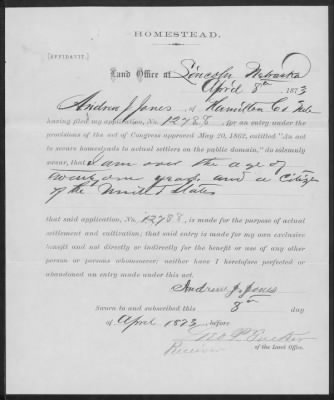 HOMESTEAD.
(AFFIDAVIT.)
Land Office at Lincoln Nebraska
April 8th 1873
Andrew J Jones of Hamilton Co Neb
having filed my application, No. 12788 for an entry under the
provisions of the act of Congress approved May 20, 1862, entitled "An act
to secure homesteads to actual settlers on the public domain," do solemnly
swear, that I am over the age of
twenty one years and a Citizen
of the United States
that said application, No. 12788, is made for the purpose of actual
settlement and cultivation; that said entry is made for my own exclusive
benefit and not directly or indirectly for the benefit or use of any other
person or persons whomsoever; neither have I heretofore perfected or
abandoned an entry made under this act.
Andrew J. Jones
Sworn to and subscribed this 8th day
of April 1873, before
Tucker
Receiver of the Land Office.